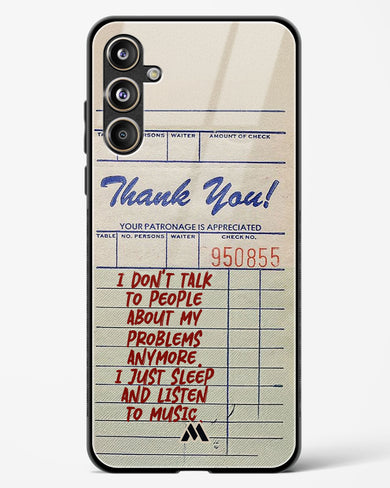 TA PERSONS WAITER AMOUNT OF CHECK
Thank You!
YOUR PATRONAGE IS APPRECIATED
TABLE NO. PERSONS WAITER CHECK NO.
950855
I DON'T TALK
TO PEOPLE
ABOUT MY
PROBLEMS
ANYMORE.
I JUST SLEEP
AND LISTEN
TO MUSIC.